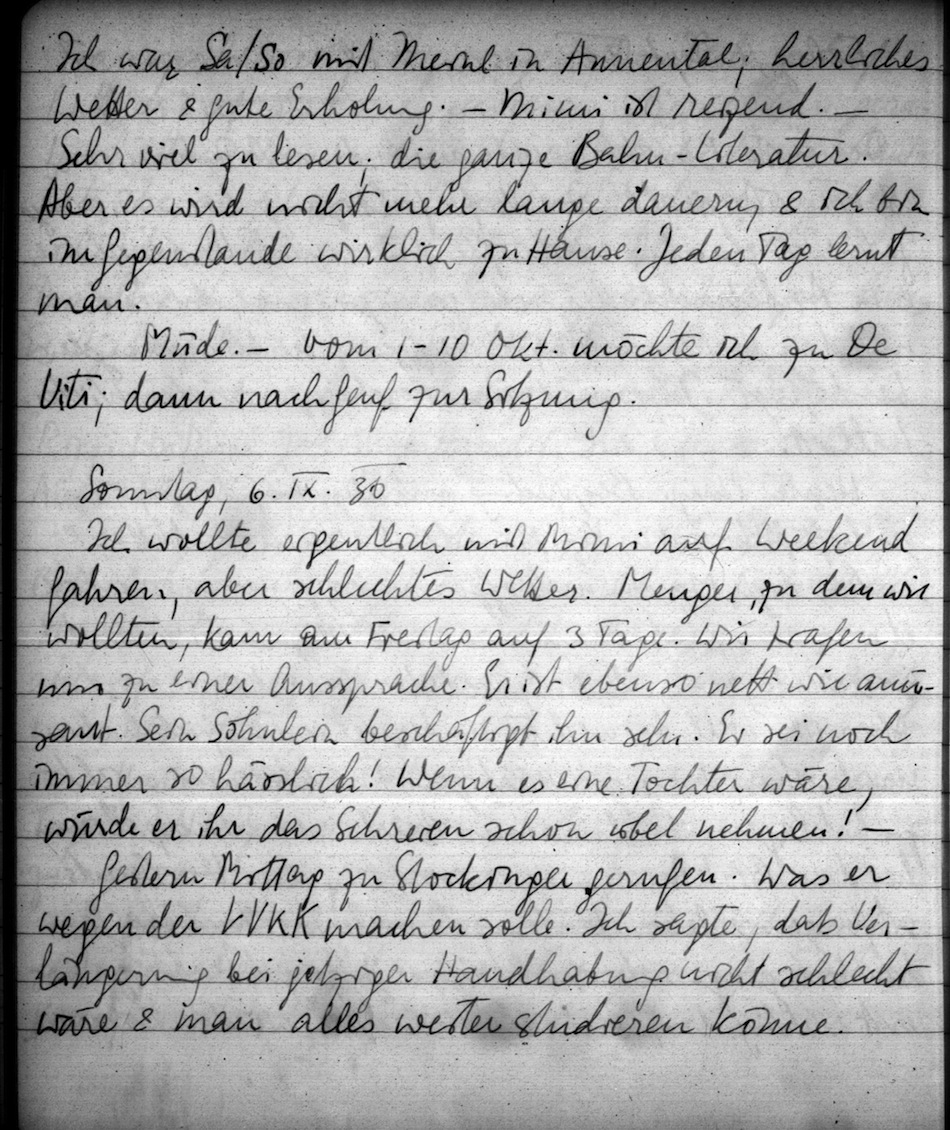 Ich war Sa/So mit Meinl in Annental; herrliches
Wetter & gute Erholung. — Mimi ist reizend. —
Sehr viel zu lesen; die ganze Bahn-Literatur.
Aber es wird nicht mehr lange dauern, & ich bin
im Gegenstande wirklich zu Hause. Jeden Tag lernt
man.
Müde. — Vom 1-10 Okt. möchte ich zu De
Viti; dann nach Genf zur Sitzung.
Sonntag, 6. IX. 36
Ich wollte eigentlich mit Mimi auf Weekend
fahren, aber schlechtes Wetter. Menger, zu dem wir
wollten, kam am Freitag auf 3 Tage. Wir trafen
uns zu einer Aussprache. Er ist ebenso nett wie amü-
sant. Sein Söhnlein beschäftigt ihn sehr. Er sei noch
immer so hässlich! Wenn es eine Tochter wäre,
würde er ihr das Schreien schon übel nehmen! —
Gestern Mittag zu Stockinger gerufen. Was er
wegen der VVKK machen solle. Ich sagte, dass Ver-
längerung bei jetziger Handhabung nicht schlecht
wäre & man alles weiter studieren könne.